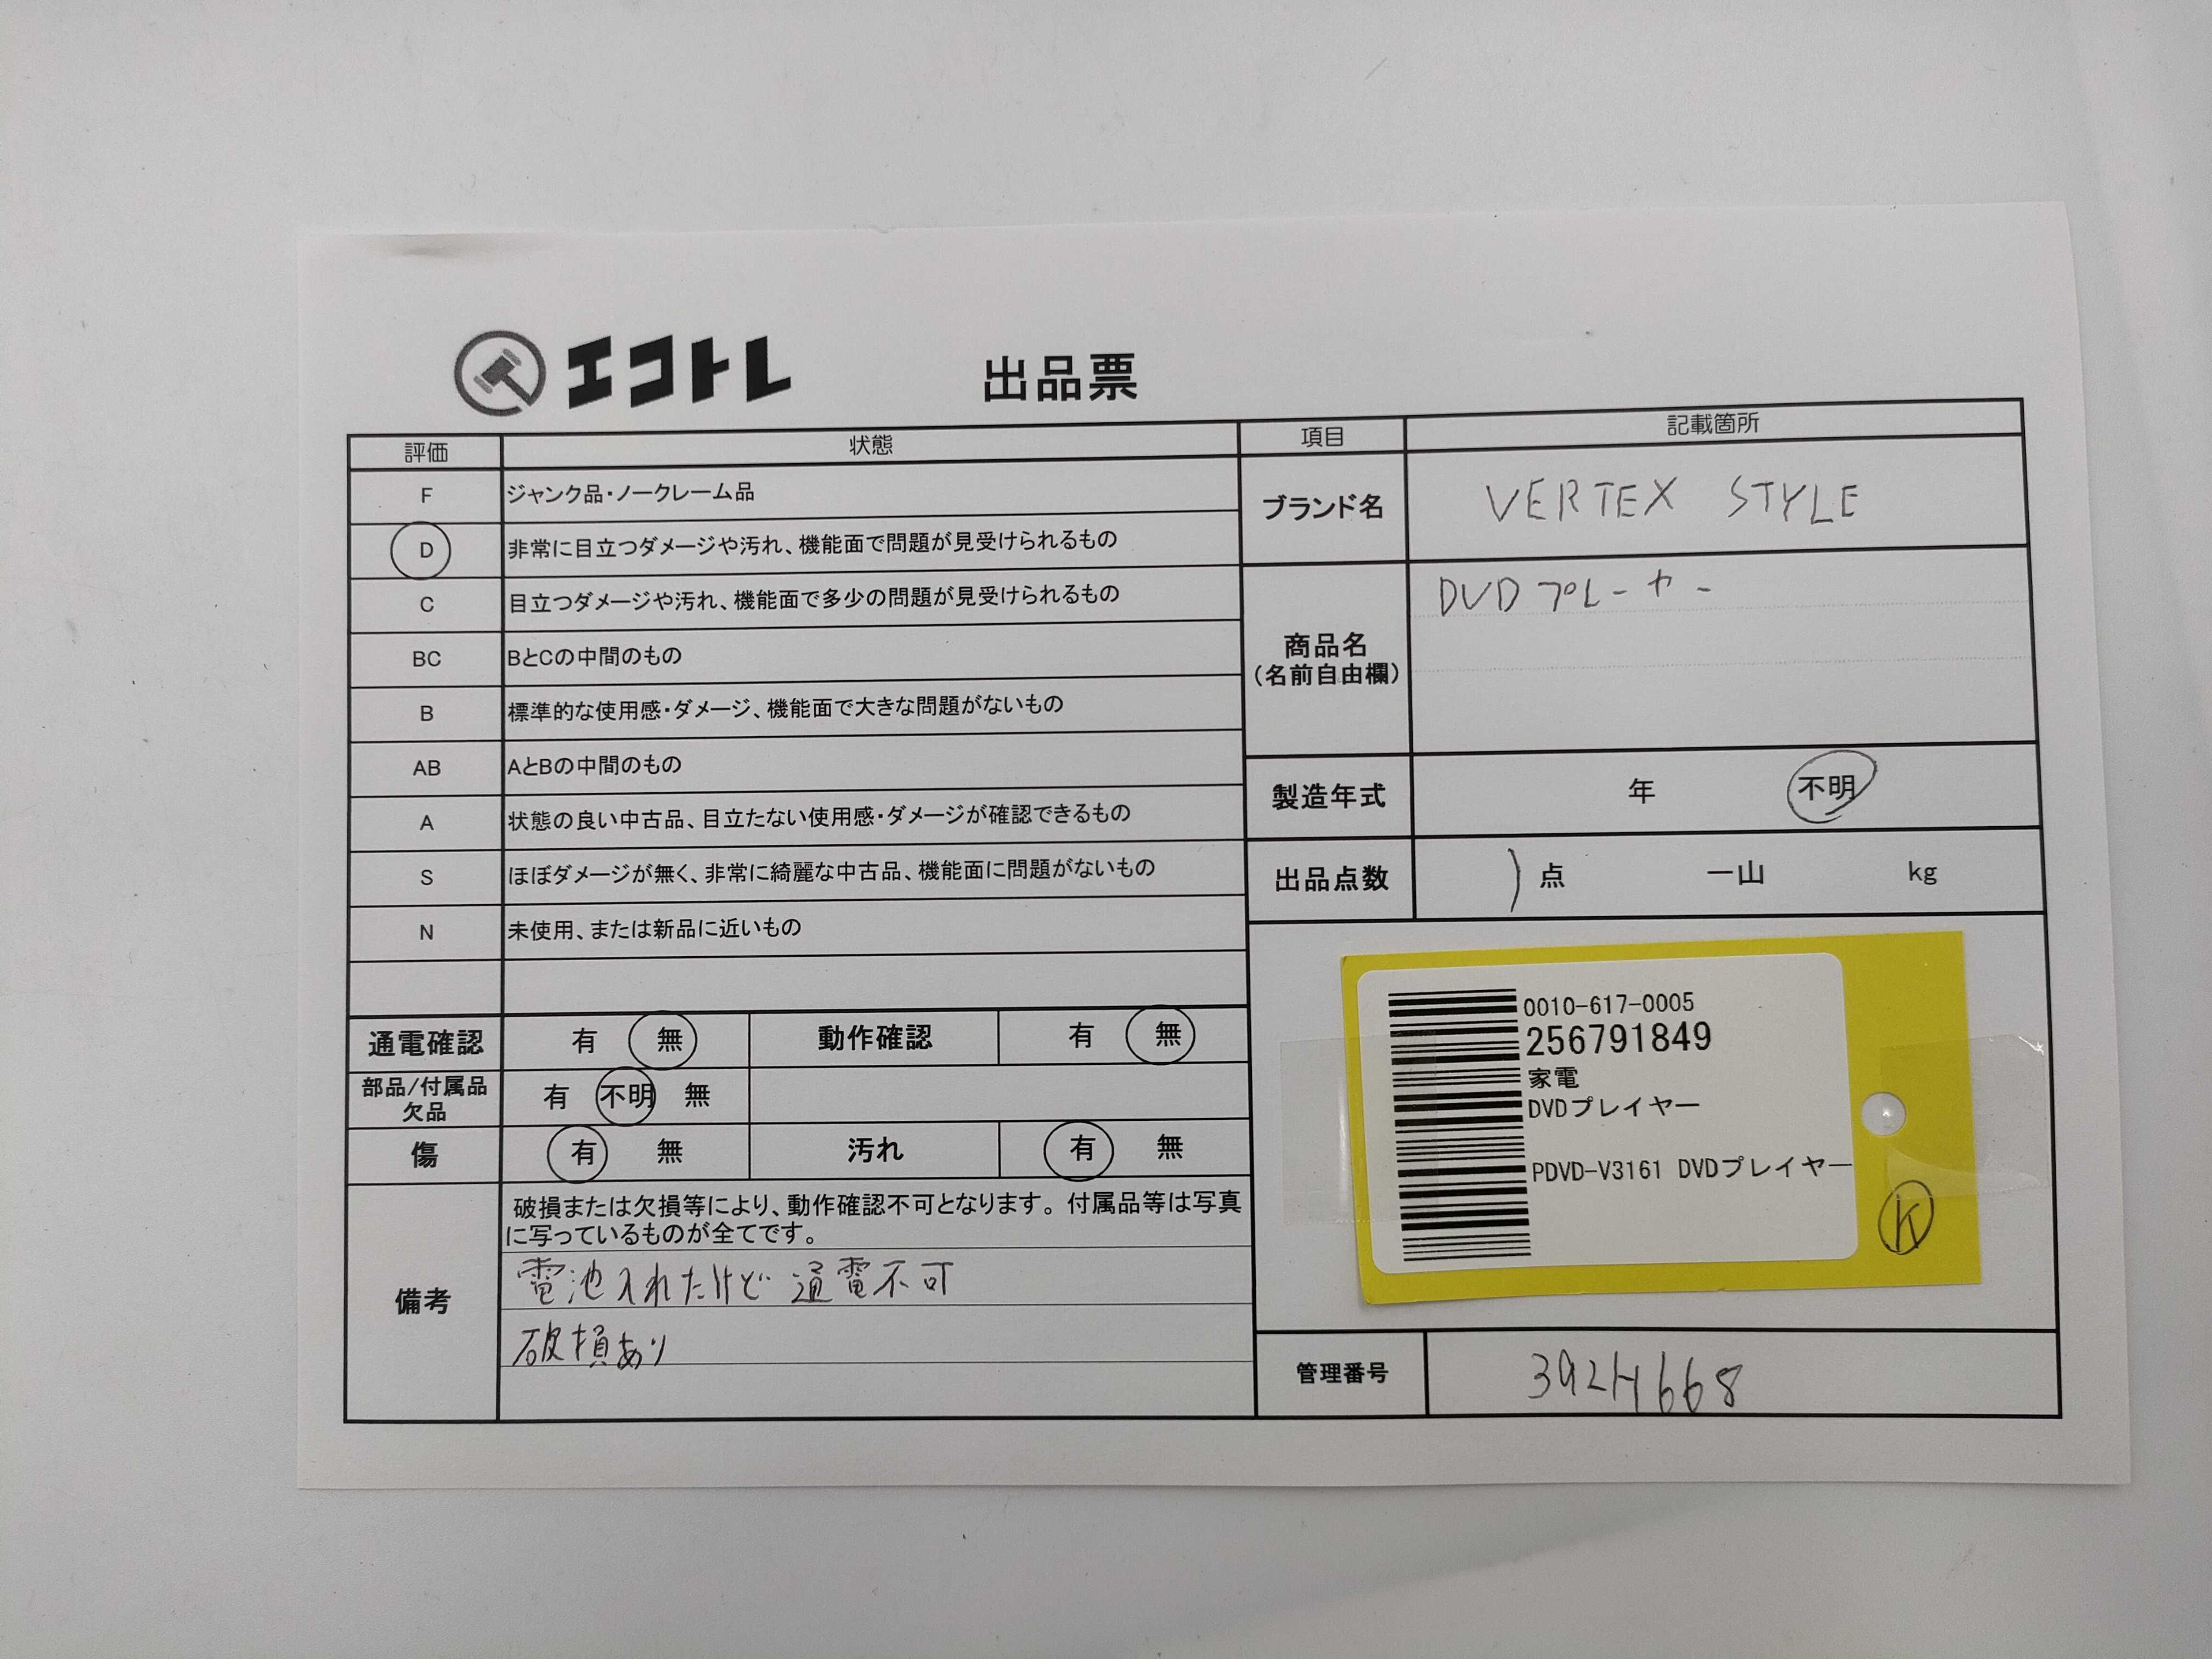 エコトレ 出品票
評価 状態
F ジャンク品・ノークレーム品
D 非常に目立つダメージや汚れ、機能面で問題が見受けられるもの
C 目立つダメージや汚れ、機能面で多少の問題が見受けられるもの
BC BとCの中間のもの
B 標準的な使用感・ダメージ、機能面で大きな問題がないもの
AB AとBの中間のもの
A 状態の良い中古品、目立たない使用感・ダメージが確認できるもの
S ほぼダメージが無く、非常に綺麗な中古品、機能面に問題がないもの
N 未使用、または新品に近いもの
通電確認 有 無 動作確認 有 無
部品/付属品
欠品 有 不明 無
傷 有 無 汚れ 有 無
備考
破損または欠損等により、動作確認不可となります。付属品等は写真
に写っているものが全てです。
電池入れたけど 通電不可
破損あり
項目 記載箇所
ブランド名 VERTEX STYLE
商品名
(名前自由欄)
DVDプレーヤー
製造年式 年 不明
出品点数 1点 一山 kg
0010-617-0005
256791849
家電
DVDプレイヤー
PDVD-V3161 DVDプレイヤー
K
管理番号 392H668